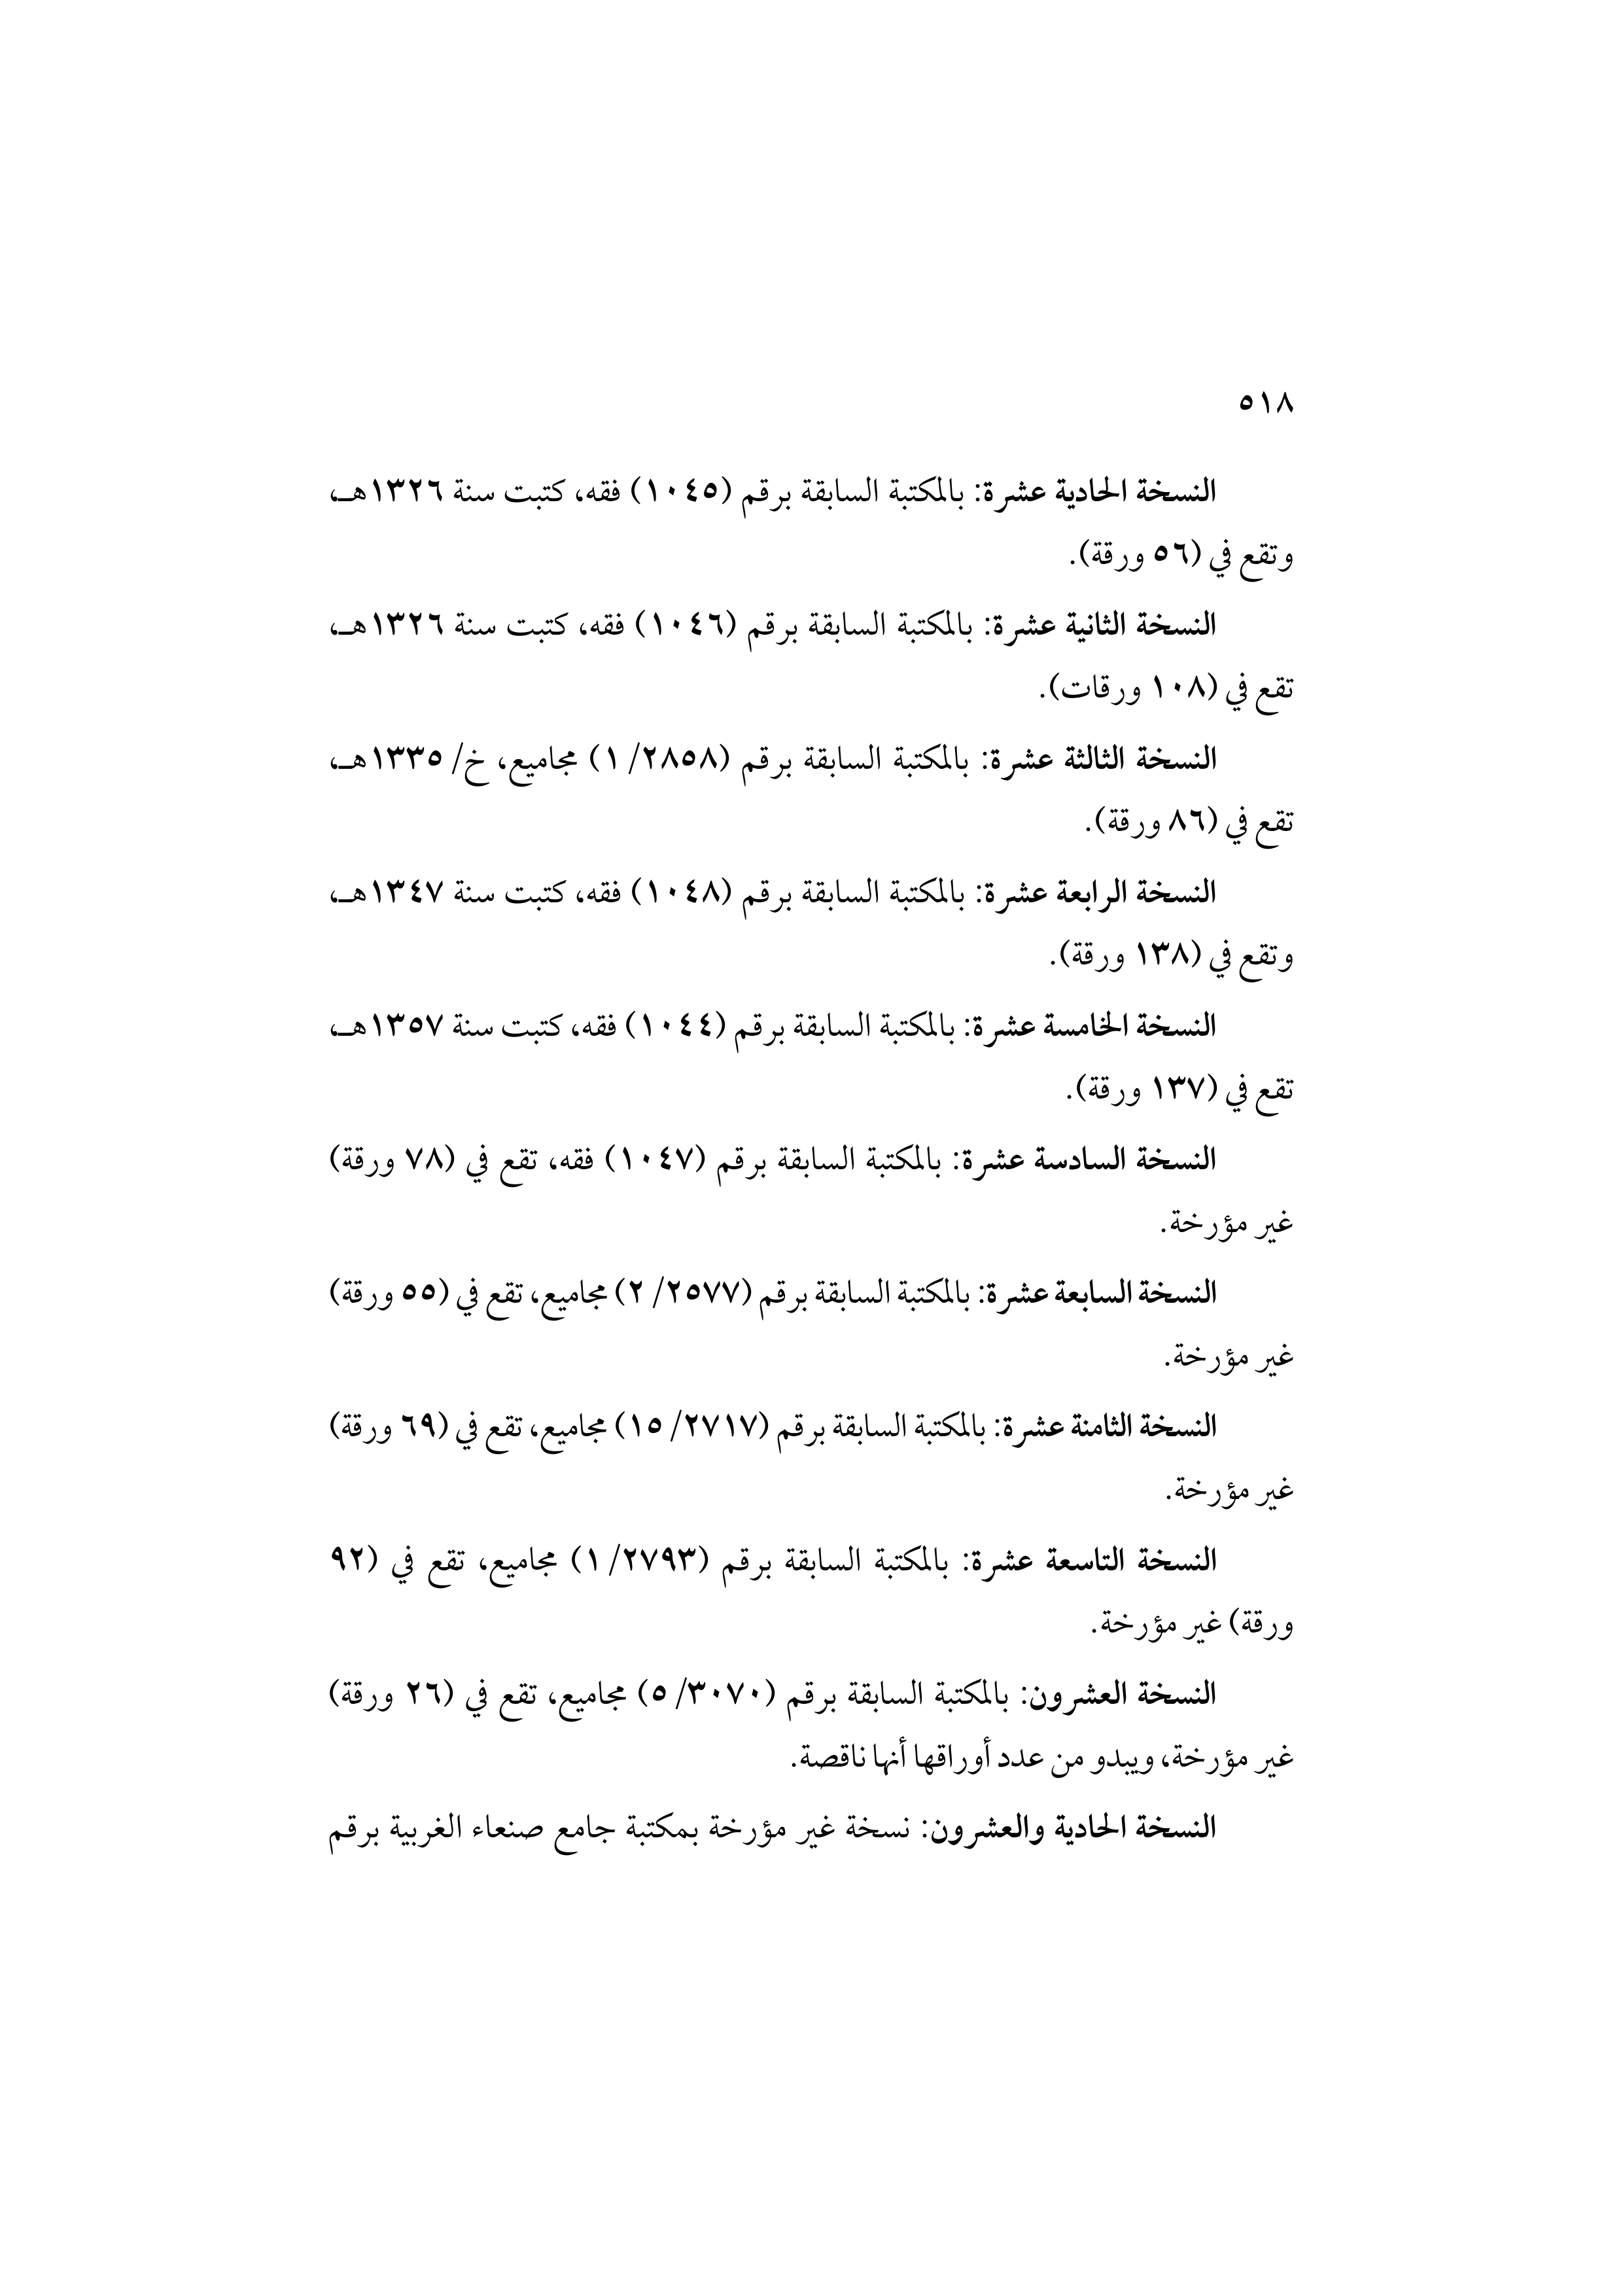 ٥١٨
النسخة الحادية عشرة: بالمكتبة السابقة برقم (١٠٤٥) فقه، كتبت سنة ١٣٢٦هـ،
وتقع في (٥٦ ورقة).
النسخة الثانية عشرة: بالمكتبة السابقة برقم (١٠٤٦) فقه، كتبت سنة ١٣٢٦هـ،
تقع في (١٠٨ ورقات).
النسخة الثالثة عشرة: بالمكتبة السابقة برقم (٢٨٥٨/ ١) مجاميع، خ/ ١٣٣٥هـ،
تقع في (٨٦ ورقة).
النسخة الرابعة عشرة: بالمكتبة السابقة برقم (١٠٤٨) فقه، كتبت سنة ١٣٤٧هـ،
وتقع في (١٣٨ ورقة).
النسخة الخامسة عشرة: بالمكتبة السابقة برقم (١٠٤٤) فقه، كتبت سنة ١٣٥٧هـ،
تقع في (١٣٧ ورقة).
النسخة السادسة عشرة: بالمكتبة السابقة برقم (١٠٤٧) فقه، تقع في (٧٨ ورقة)
غير مؤرخة.
النسخة السابعة عشرة: بالمكتبة السابقة برقم (٢٥٧٧/ ٢) مجاميع، تقع في (٥٥ ورقة)
غير مؤرخة.
النسخة الثامنة عشرة: بالمكتبة السابقة برقم (٢٧١٧/ ١٥) مجاميع، تقع في (٦٩ ورقة)
غير مؤرخة.
النسخة التاسعة عشرة: بالمكتبة السابقة برقم (٢٧٩٣/ ١) مجاميع، تقع في (٩٢
ورقة) غير مؤرخة.
النسخة العشرون: بالمكتبة السابقة برقم (٣٠٧٠/ ٥) مجاميع، تقع في (٢٦ ورقة)
غير مؤرخة، ويبدو من عدد أوراقها أنها ناقصة.
النسخة الحادية والعشرون: نسخة غير مؤرخة بمكتبة جامع صنعاء الغربية برقم